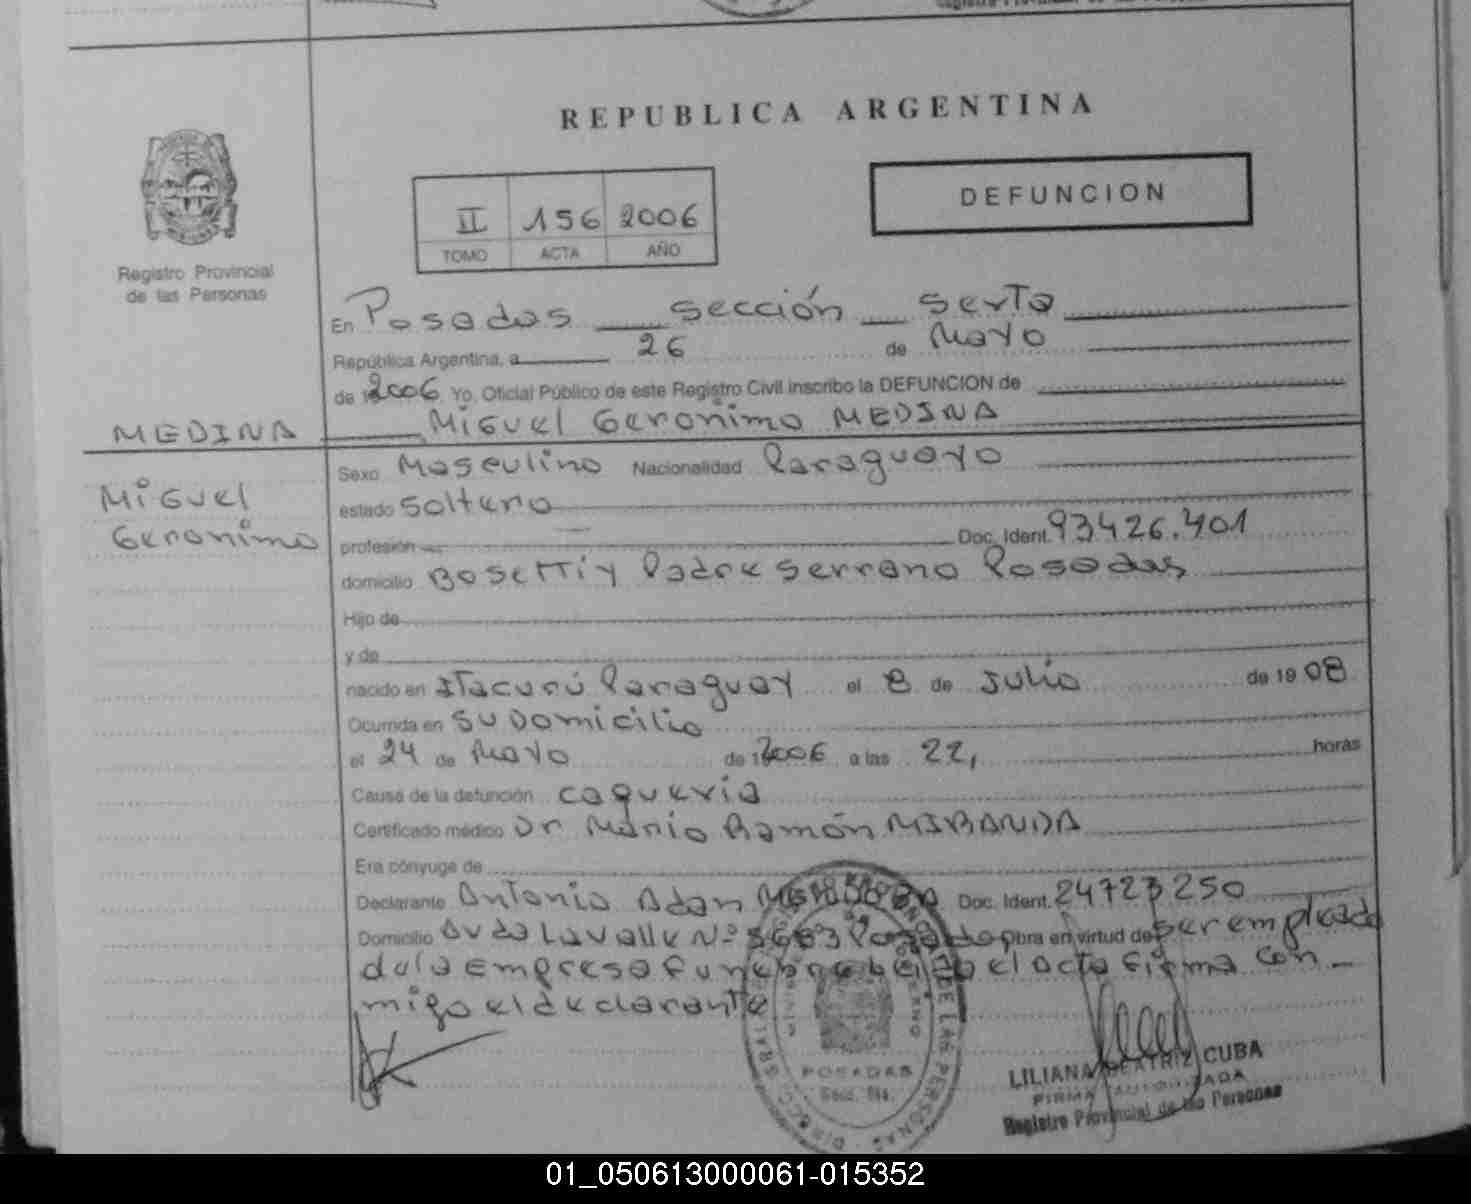 REPUBLICA ARGENTINA
DEFUNCION
II 156 2006
TOMO ACTA AÑO
Registro Provincial
de las Personas
En Posadas sección sexta
República Argentina, a 26 de Mayo
de 2006 Yo, Oficial Público de este Registro Civil inscribo la DEFUNCION de
MEDINA
Miguel Geronimo MEDINA
Miguel
Geronimo
Sexo Masculino Nacionalidad Paraguayo
estado soltero
profesión Doc. Ident. 93426.401
domicilio Bosetti y Padre Serrano Posadas
Hijo de
y de
nacido en Itacurú Paraguay el 8 de Julio de 1908
Ocurrida en su Domicilio
el 24 de Mayo de 2006 a las 22, horas
Causa de la defunción caquexia
Certificado médico Dr. Mario Ramón MIRANDA
Era cónyuge de
Declarante Antonio Adan Doc. Ident. 24723250
Domicilio Avda Lavalle Nº 5663 Posadas Obra en virtud de ser empleado
de la Empresa funebre el acta firma con-
migo el declarante
POSADAS
LILIANA BEATRIZ CUBA
FIRMA AUTORIZADA
Registro Provincial de las Personas
01_050613000061-015352